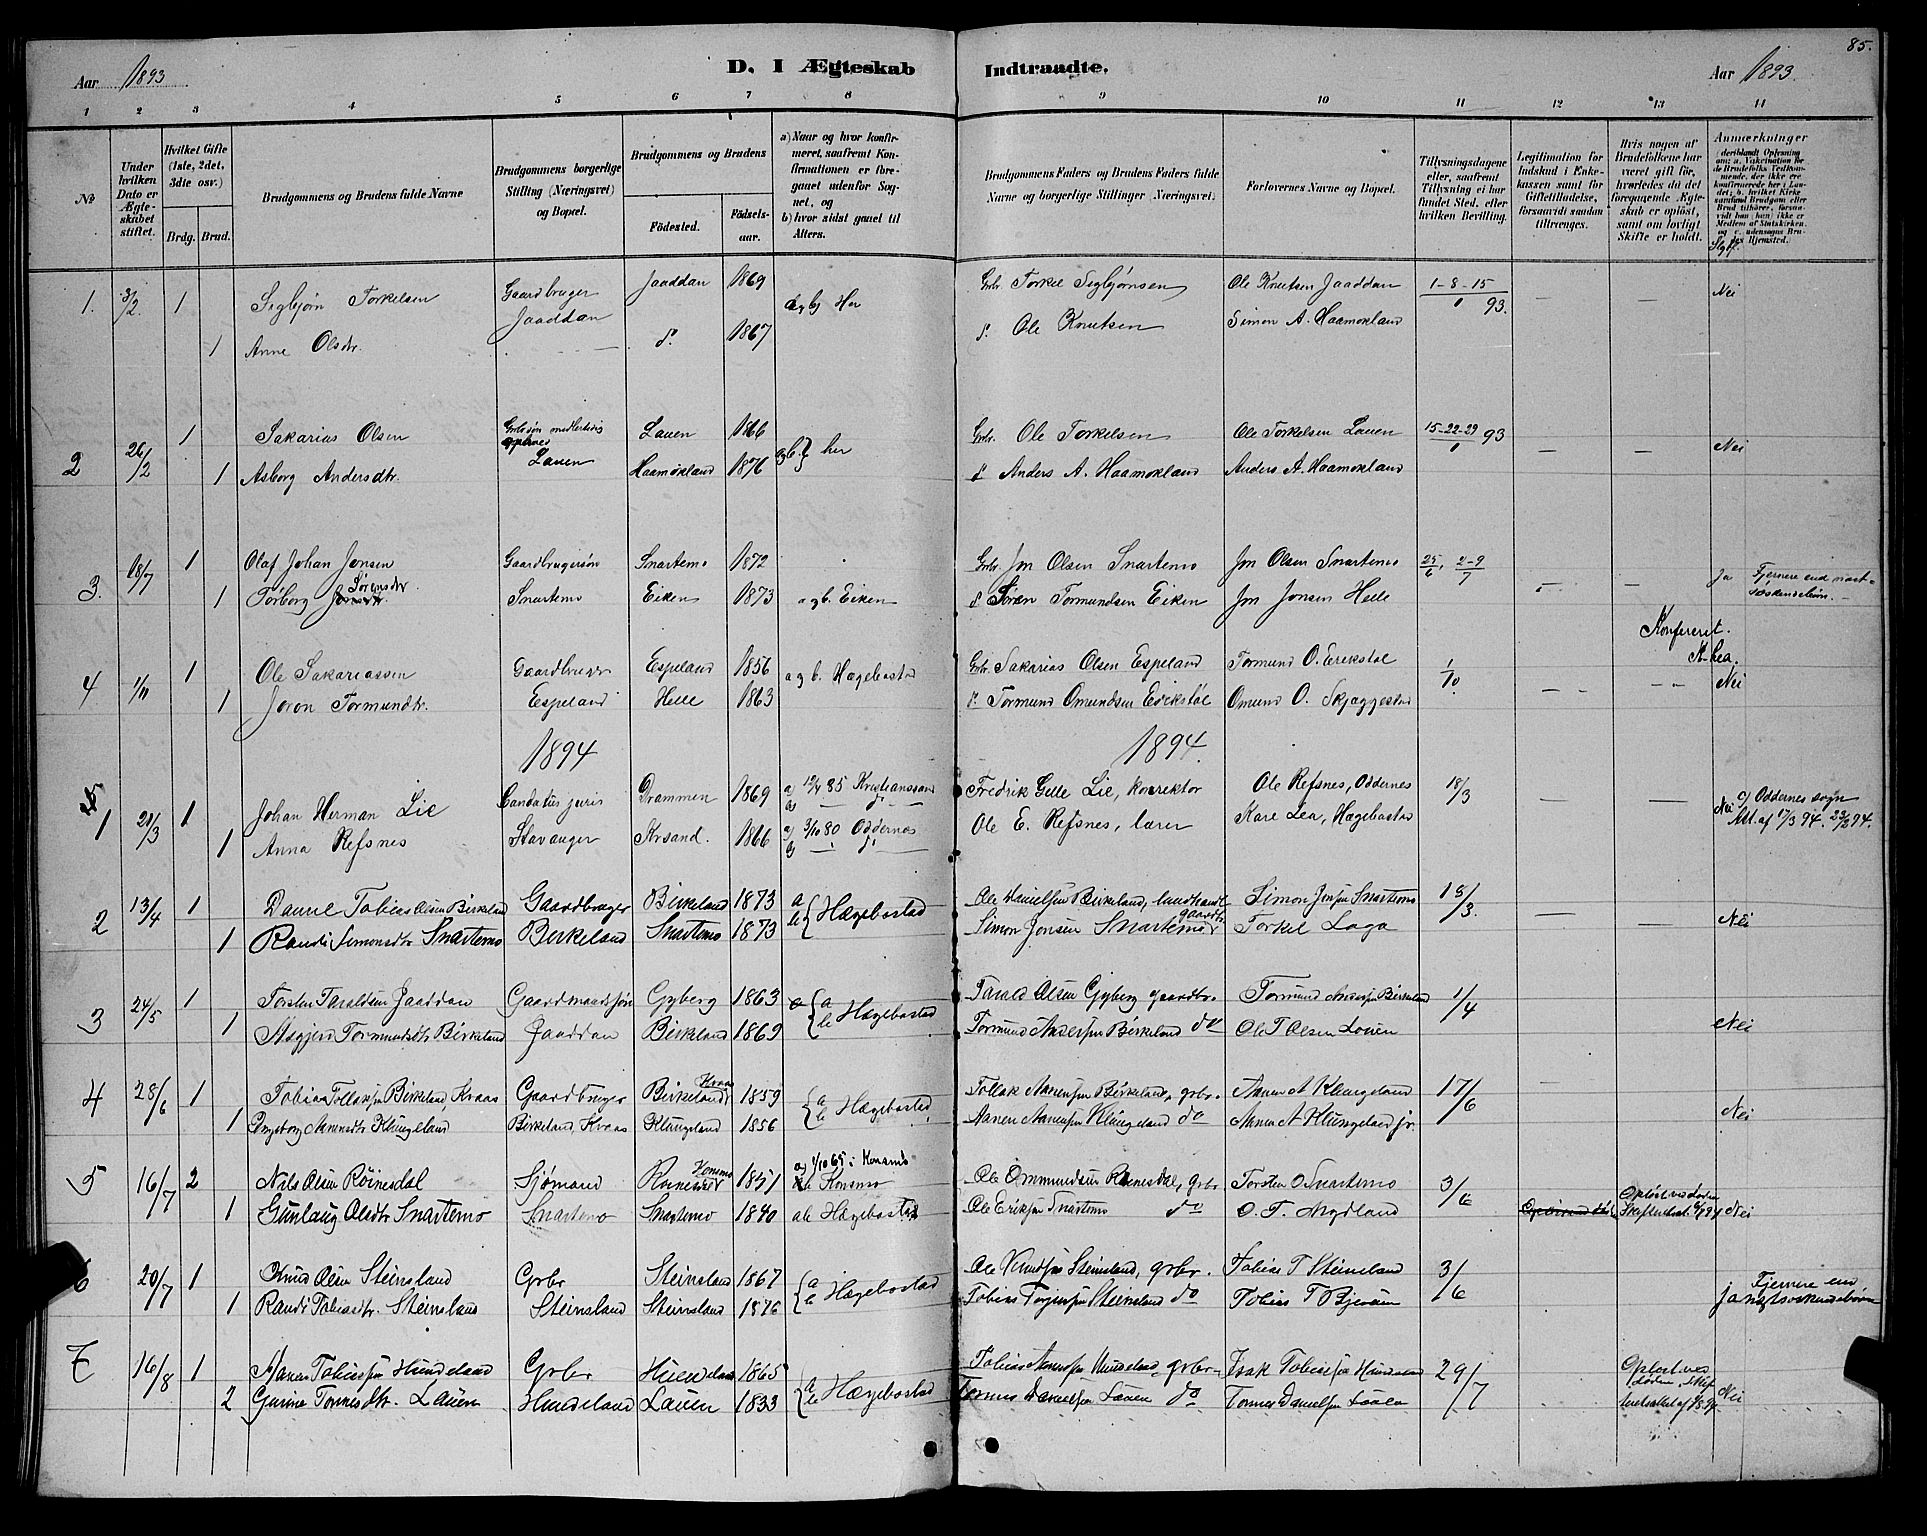 85.
Aar 1893
D. I Ægteskab Indtraadte.
Aar 1893.
1 2 3 4 5 6 7 8 9 10 11 12 13 14
No
Under hvilken Dato er Ægteskabet stiftet.
Hvilket Gifte (1ste, 2det, 3die osv.)
Brdg. Brud.
Brudgommens og Brudens fulde Navne
Brudgommens borgerlige Stilling (Næringsvei) og Bopæl.
Brudgommens og Brudens
Fødested.
Fødselsaar.
a) Naar og hvor konfirmeret, saafremt Konfirmationen er foregaaet udenfor Sognet, og
b) hvor sidst gaaet til Alters.
Brudgommens Faders og Brudens Faders fulde Navne og borgerlige Stillinger (Næringsvei).
Forlovernes Navne og Bopæl.
Tillysningsdagene eller, saafremt Tillysning ei har fundet Sted, efter hvilken Bevilling.
Legitimation for Indskud i Enkekassen samt for Giftetilladelse, forsaavidt saadan tiltrænges.
Hvis nogen af Brudefolkene har været gift før, hvorledes da det foregaaende Ægteskab er opløst, samt om lovligt Skifte er holdt.
Anmærkninger (deriblandt Oplysning om: a. Vakcination for de Brudefolks Vedkommende, der ikke ere konfirmerede her i Landet; b. hvilket Kirkesamfund Brudgom eller Brud tilhører, forsaavidt han (hun) ikke er Medlem af Statskirken, og c. udensogns Brudes Hjemsted.
1. 3/2 1 Segbjøn Torkelsen Gaardbruger Jaaddan 1869 a og b Her Grbr. Torkel Segbjørnsen Ole Knutsen Jaaddan 1-8-15/1 93. — — Nei
1 Anne Olsdtr. Jaaddan d. 1867 d. Ole Knutsen Simon A. Haamokland
2 26/2 1 Sakarias Olsen Lauen Lauen 1866 her Grbr. Ole Torkelsen Ole Torkelsen Lauen 15-22-29/1 93 — — Nei
1 Asborg Andersdtr. Haamokland 1876 d Anders A. Haamokland Anders A. Haamokland
3. 18/7 1 Olaf Johan Jensen Gaardbrugersøn Snartemo 1872 Grbr. Jon Olsen Snartemo Jon Olsen Snartemo 25/6, 2-9/7 Ja Fjernere end
1 Torborg Sørensdtr Snartemo Eiken 1873 a og b. Eiken d Søren Tormundsen Eiken Jon Jonsen Helle
Konfereret.
A. Lea.
4 1/11 1 Ole Sakariassen Gaardbruger Espeland 1856 a og b. Hægebostad Grbr. Sakarias Olsen Espeland Tormund O. Erikstøl 1/10. Nei
1 Joron Tormundtr. Espeland Helle 1863 d. Tormund Omundsen Erikstøl Omund O. Skjæggestad
1894 1894.
1 21/3 1 Johan Herman Lie Candatus juris Drammen 1869 a 12/4 85 Kristianssand Fredrik Gelle Lie, korrektor Ole Refsnes, Oddernes 18/3 — — Nei c) Oddernes sogn
1 Anna Refsnes Stavanger Krsand. 1866 3/10 80 Oddernes Ole E. Refsnes, lærer Kare Lea, Hægebostad Att. af 17/3 94.
2 13/4 1 Daniel Tobias Olsen Birkeland Gaardbruger Birkeland 1873 a b Hægebostad Ole Danielsen Birkeland, landhandl Simon Jonsen Snartemo 18/3. — — Nei
1 Randi Simonsdtr Snartemo Birkeland Snartemo 1873 Simon Jonsen Snartemo gaardbr Torkel Laga
3 24/5 1 Torsten Taraldsen Jaaddan Gaardmandssøn Gyberg 1863 a b Hægebostad Tarald Olsen Gyberg gaardbr. Tormund Andersen Birkeland 1/4 Nei
1 Asgjerd Tormundsdtr Birkeland Jaaddan Birkeland 1869 Tormund Andersen Birkeland do Ole T Olsen Louen
4 28/6 1 Tobias Tollaksen Birkeland, Kraas Gaardbruger Birkeland Kraas 1859 a b Hægebostad Tollak Aanensen Birkeland, grbr. Aanen A Klungeland 17/6 — Nei
1 Ingeborg Aanensdtr Klungeland Birkeland Kraas Klungeland 1856 Aanen Aanensen Klungeland do Aanen A Klungeland jr.
5 16/7 2 Nils Olsen Røinesdal Sjømand 1851 a 1/10 65 i Konsmo b Konsmo Ole Ommundsen Røinesdal, grbr Torsten O Snartemo 3/6 Opløst ved døden
1 Gunlaug Olsdtr Snartemo Snartemo Snartemo 1840 ab Hægebostad Ole Eriksen Snartemo do O. T. Mydland Nei
6 20/7 1 Knud Olsen Steinsland Grbr Steinsland 1867 a b Hægebostad Ole Knudsen Steinsland, grbr. Tobias T Steinsland 3/6 Fjernere end
1 Randi Tobiasdtr. Steinsland Steinsland Steinsland 1876 Tobias Torjusen Steinsland do Tobias T Bjerum ja næstsøskendebørn
7 16/8 1 Aanen Tobiassen Hundeland Grbr Hundeland 1865 a b Hægebostad Tobias Aanensen Hundeland, grbr Isak Tobiassen Hundeland 29/7 Opløst ved døden
2 Gurine Tønnesdtr. Lauen Hundeland Lauen 1833 Tønnes Danielsen Lauen do Tønnes Danielsen Nei